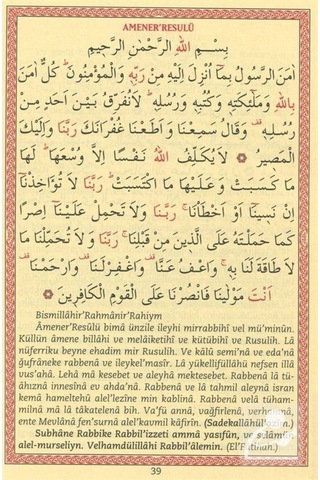 AMENER'RESULÜ
بِسْــمِ اللهِ الرَّحْمٰنِ الرَّحِيمِ
اٰمَنَ الرَّسُولُ بِمَٓا اُنْزِلَ اِلَيْهِ مِنْ رَبِّه۪ وَالْمُؤْمِنُونَۜ كُلٌّ اٰمَنَ
بِاللهِ وَمَلٰٓئِكَتِه۪ وَكُتُبِه۪ وَرُسُلِه۪ۜ لَانُفَرِّقُ بَيْنَ اَحَدٍ مِنْ
رُسُلِه۪ۜ وَقَالُوا سَمِعْنَا وَاَطَعْنَا غُفْرَانَكَ رَبَّنَا وَاِلَيْكَ
الْمَص۪يرُ ۞ لَا يُكَلِّفُ اللهُ نَفْسًا اِلَّا وُسْعَهَاۜ لَهَا
مَا كَسَبَتْ وَعَلَيْهَا مَا اكْتَسَبَتْۜ رَبَّنَا لَا تُؤَاخِذْنَٓا
اِنْ نَس۪ينَٓا اَوْ اَخْطَأْنَاۚ رَبَّنَا وَلَا تَحْمِلْ عَلَيْنَٓا اِصْرًا
كَمَا حَمَلْتَهُ عَلَى الَّذ۪ينَ مِنْ قَبْلِنَاۚ رَبَّنَا وَلَا تُحَمِّلْنَا مَا
لَا طَاقَةَ لَنَا بِه۪ۚ وَاعْفُ عَنَّا۠ وَاغْفِرْلَنَا۠ وَارْحَمْنَا۠
اَنْتَ مَوْلٰينَا فَانْصُرْنَا عَلَى الْقَوْمِ الْكَافِر۪ينَ ۞
Bismillâhir'Rahmânir'Rahiym
Âmener'Resûlü bimâ ünzile ileyhi mirrabbihî vel mü'minûn.
Küllün âmene billâhi ve melâiketihî ve kütübihî ve Rusulih. Lâ
nüferriku beyne ehadim mir Rusulih. Ve kâlû semi'nâ ve eda'nâ
ğufraneke rabbenâ ve ileykel'masîr. Lâ yükellifullâhü nefsen illâ
vus'ahâ. Lehâ mâ kesebet ve aleyhâ mektesebet. Rabbenâ lâ tü-
âhıznâ innesînâ ev ahda'nâ. Rabbenâ ve lâ tahmil aleynâ isran
kemâ hameltehû alel'lezîne min kablinâ. Rabbenâ velâ tüham-
milnâ mâ lâ tâkatelenâ bih. Va'fü annâ, vağfirlenâ, verhamnâ,
ente Mevlânâ fen'surnâ alel'kavmil kâfirîn. (Sadekallâhül'azîm.)
Subhâne Rabbike Rabbil'izzeti ammâ yasıfûn, ve selâmün
alel-murseliyn. Velhamdülillâhi Rabbil'âlemin. (El'Fatihah.)
39